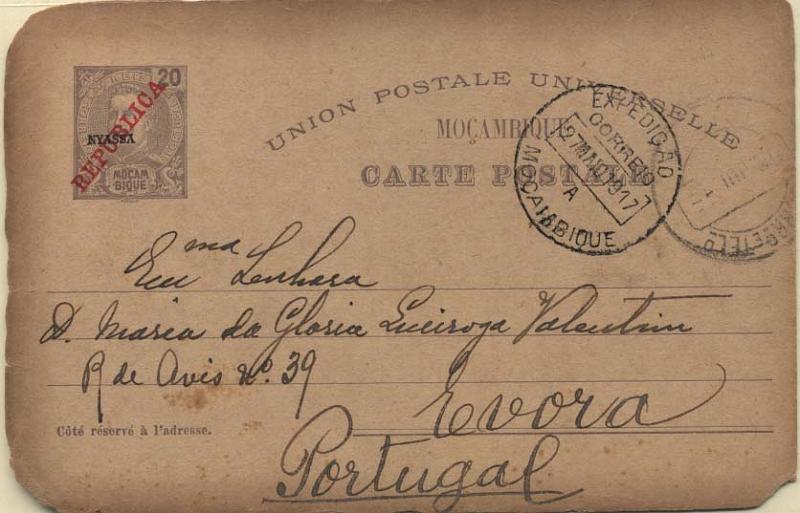 20
NYASSA
REPUBLICA
MOÇAM
BIQUE
UNION POSTALE UNIVERSELLE
MOÇAMBIQUE
CARTE POSTALE
EXPEDIÇÃO
CORREIO
1917
A
MOÇAMBIQUE
Exma Senhora
D. Maria da Gloria Queiroga Valentim
R de Avis nº. 39
Evora
Côté réservé à l'adresse.
Portugal